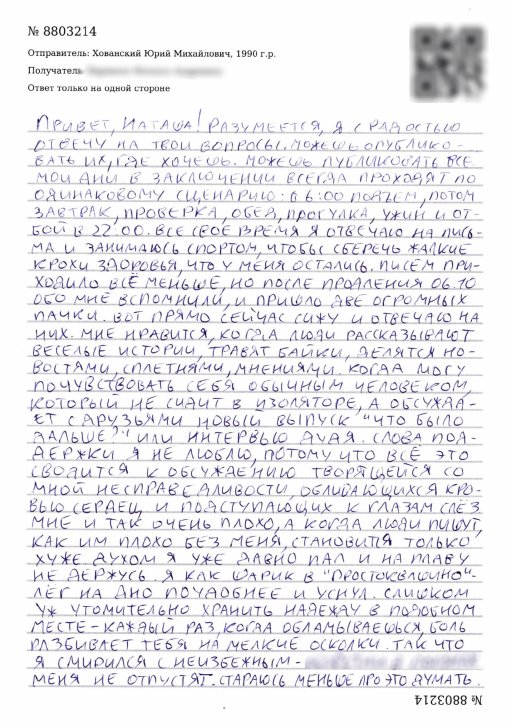 № 8803214
Отправитель: Хованский Юрий Михайлович, 1990 г.р.
Получатель
Ответ только на одной стороне
ПРИВЕТ, НАТАША! РАЗУМЕЕТСЯ, Я С РАДОСТЬЮ
ОТВЕЧУ НА ТВОИ ВОПРОСЫ. МОЖЕШЬ ОПУБЛИКО-
ВАТЬ ИХ, ГДЕ ХОЧЕШЬ. МОЖЕШЬ ПУБЛИКОВАТЬ ВСЕ.
МОИ ДНИ В ЗАКЛЮЧЕНИИ ВСЕГДА ПРОХОДЯТ ПО
ОДИНАКОВОМУ СЦЕНАРИЮ: В 6:00 ПОДЪЕМ, ПОТОМ
ЗАВТРАК, ПРОВЕРКА, ОБЕД, ПРОГУЛКА, УЖИН И ОТ-
БОЙ В 22:00. ВСЕ СВОЕ ВРЕМЯ Я ОТВЕЧАЮ НА ПИСЬ-
МА И ЗАНИМАЮСЬ СПОРТОМ, ЧТОБЫ СБЕРЕЧЬ ЖАЛКИЕ
КРОХИ ЗДОРОВЬЯ, ЧТО У МЕНЯ ОСТАЛИСЬ. ПИСЕМ ПРИ-
ХОДИЛО ВСЁ МЕНЬШЕ, НО ПОСЛЕ ПРОДЛЕНИЯ 06.10
ОБО МНЕ ВСПОМНИЛИ, И ПРИШЛО ДВЕ ОГРОМНЫХ
ПАЧКИ. ВОТ ПРЯМО СЕЙЧАС СИЖУ И ОТВЕЧАЮ НА
НИХ. МНЕ НРАВИТСЯ, КОГДА ЛЮДИ РАССКАЗЫВАЮТ
ВЕСЕЛЫЕ ИСТОРИИ, ТРАВЯТ БАЙКИ, ДЕЛЯТСЯ НО-
ВОСТЯМИ, СПЛЕТНЯМИ, МНЕНИЯМИ. КОГДА МОГУ
ПОЧУВСТВОВАТЬ СЕБЯ ОБЫЧНЫМ ЧЕЛОВЕКОМ,
КОТОРЫЙ НЕ СИДИТ В ИЗОЛЯТОРЕ, А ОБСУЖДА-
ЕТ С ДРУЗЬЯМИ НОВЫЙ ВЫПУСК "ЧТО БЫЛО
ДАЛЬШЕ?" ИЛИ ИНТЕРВЬЮ ДУДЯ. СЛОВА ПОД-
ДЕРЖКИ Я НЕ ЛЮБЛЮ, ПОТОМУ ЧТО ВСЁ ЭТО
СВОДИТСЯ К ОБСУЖДЕНИЮ ТВОРЯЩЕЙСЯ СО
МНОЙ НЕСПРАВЕДЛИВОСТИ, ОБЛИВАЮЩИХСЯ КРО-
ВЬЮ СЕРДЕЦ И ПОДСТУПАЮЩИХ К ГЛАЗАМ СЛЁЗ
МНЕ И ТАК ОЧЕНЬ ПЛОХО, А КОГДА ЛЮДИ ПИШУТ,
КАК ИМ ПЛОХО БЕЗ МЕНЯ, СТАНОВИТСЯ ТОЛЬКО
ХУЖЕ. ДУХОМ Я УЖЕ ДАВНО ПАЛ И НА ПЛАВУ
НЕ ДЕРЖУСЬ. Я КАК ШАРИК В "ПРОСТОКВАШИНО"-
ЛЁГ НА ДНО ПОУДОБНЕЕ И УСНУЛ. СЛИШКОМ
УЖ УТОМИТЕЛЬНО ХРАНИТЬ НАДЕЖДУ В ПОДОБНОМ
МЕСТЕ - КАЖДЫЙ РАЗ, КОГДА ОБЛАМЫВАЕШЬСЯ, БОЛЬ
РАЗБИВАЕТ ТЕБЯ НА МЕЛКИЕ ОСКОЛКИ. ТАК ЧТО
Я СМИРИЛСЯ С НЕИЗБЕЖНЫМ -
МЕНЯ НЕ ОТПУСТЯТ. СТАРАЮСЬ МЕНЬШЕ ПРО ЭТО ДУМАТЬ.
№ 8803214